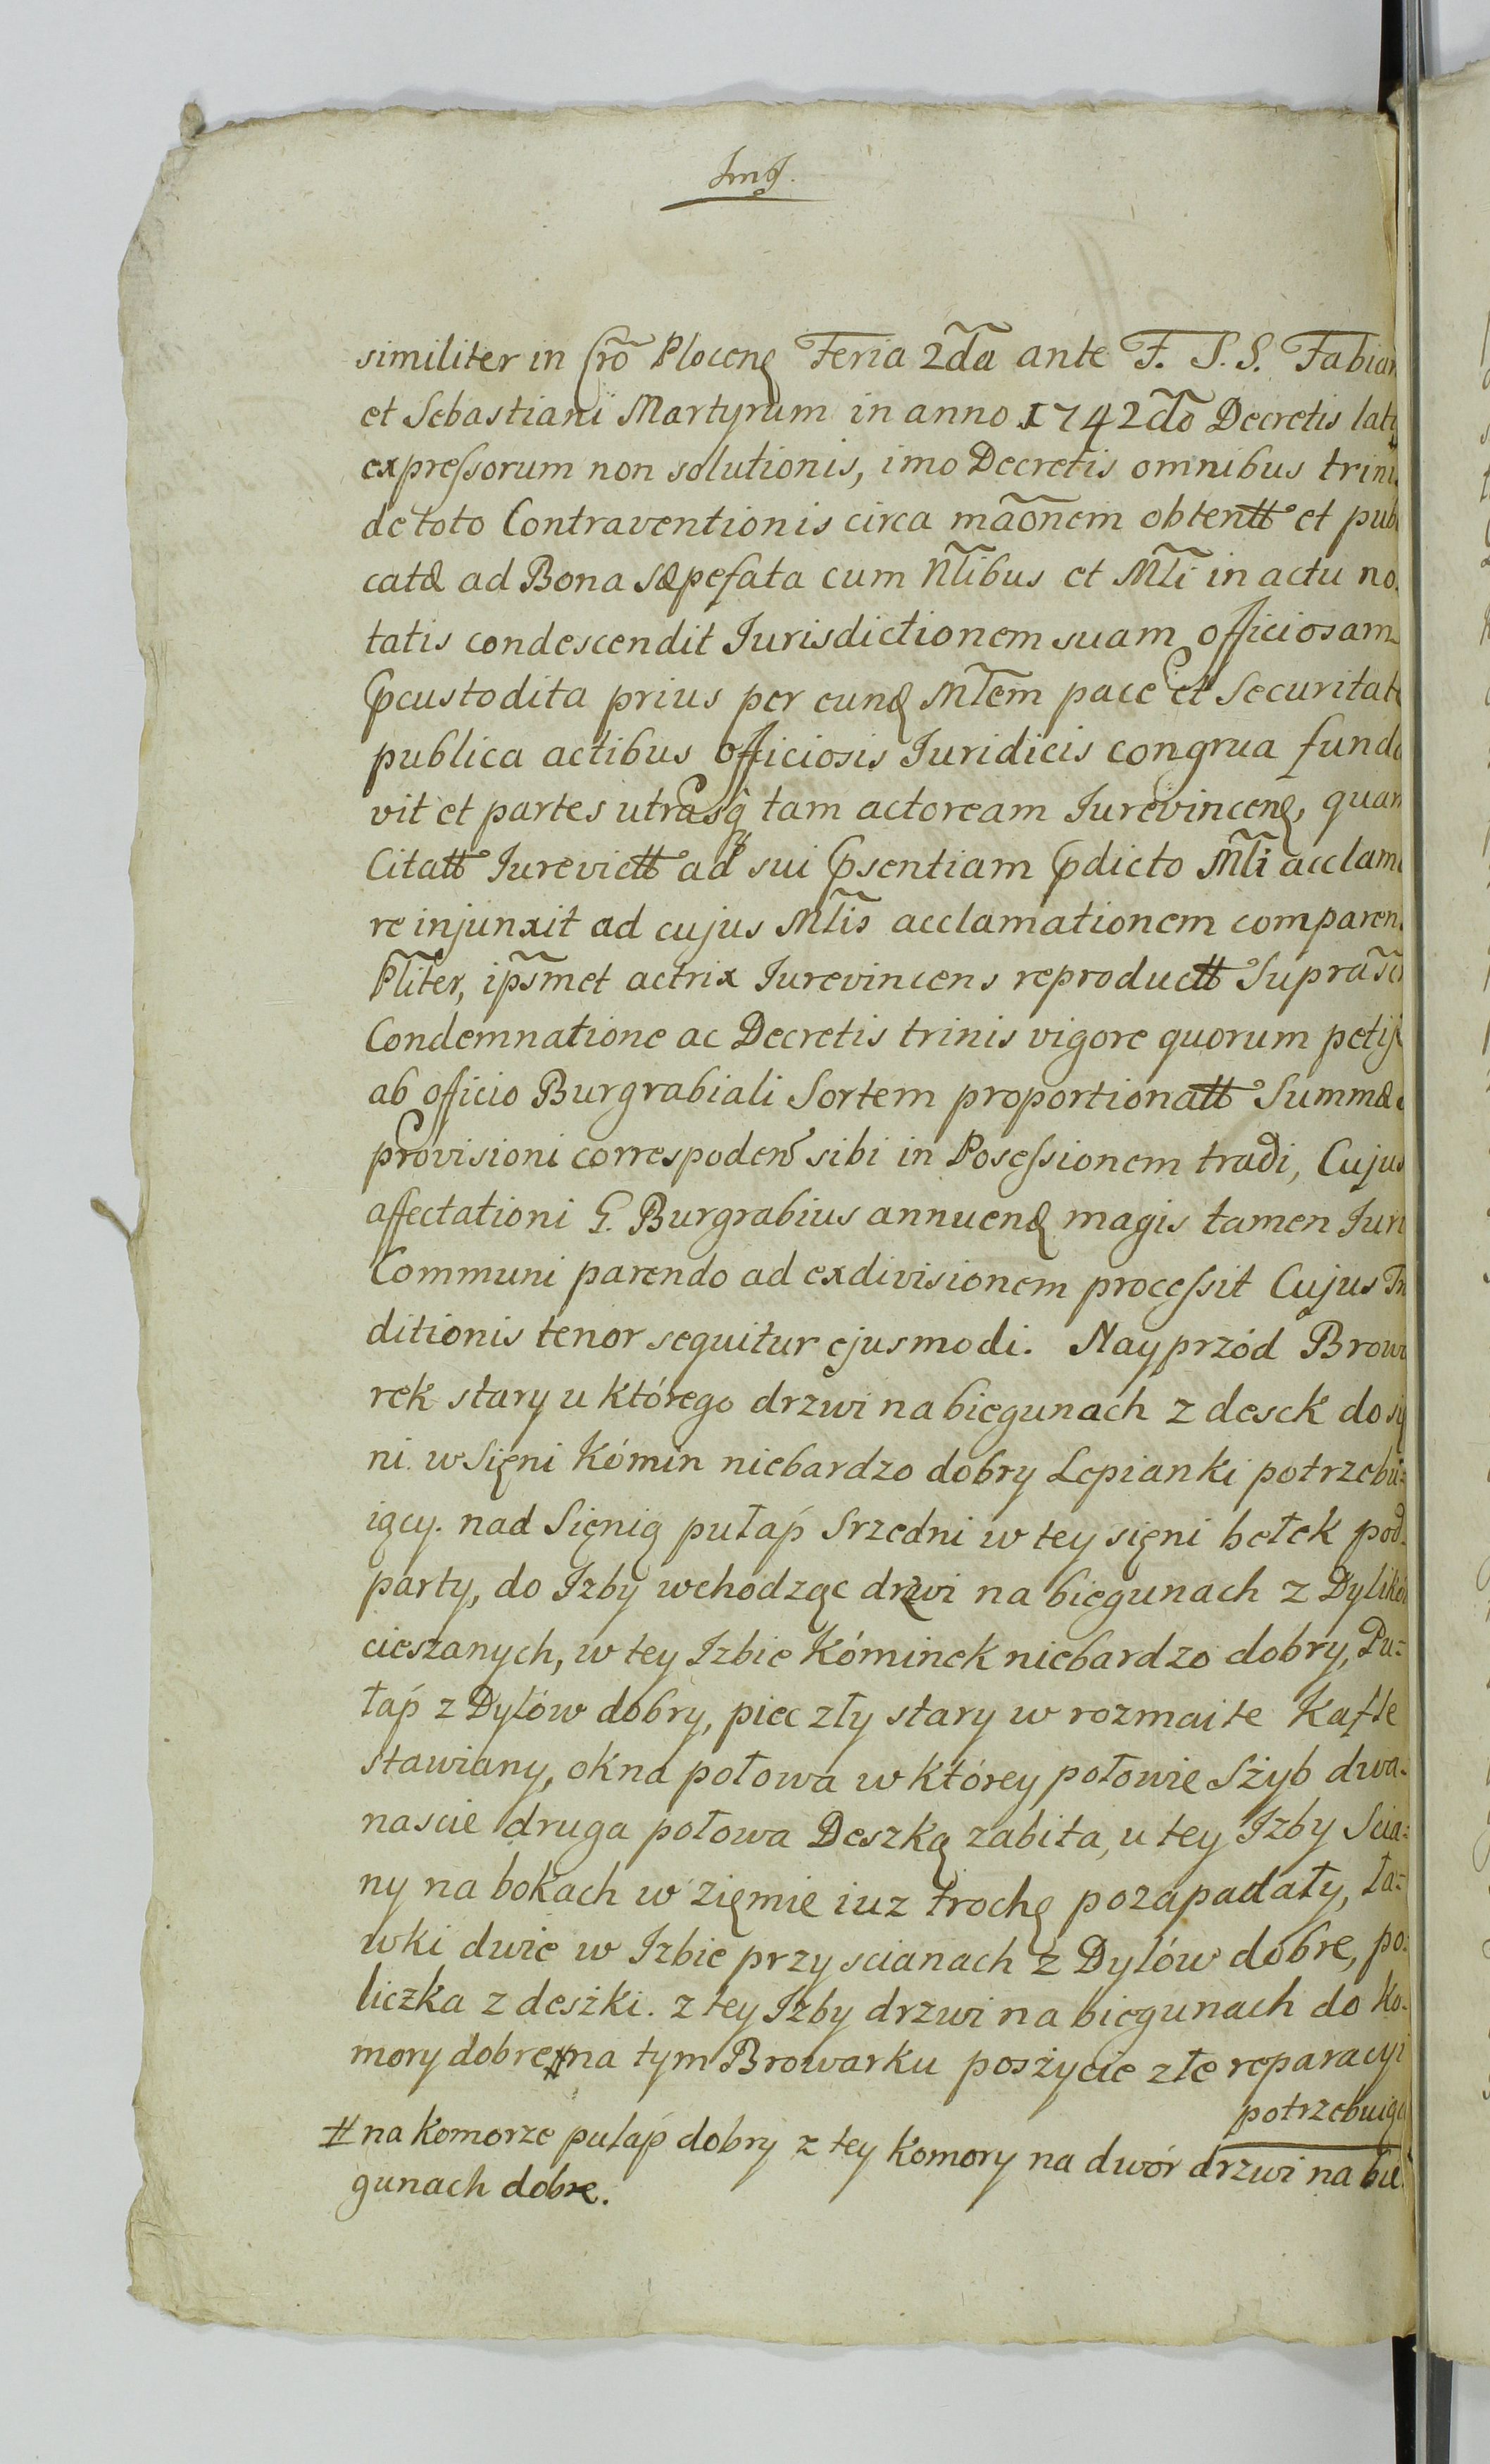 similiter in Cro Plocen Feria 2da ante F. S.S. Fabian
et Sebastiani Martyrum in anno 1742do Decretis lat
expressorum non solutionis, imo Decretis omnibus trini
de toto Contraventionis circa maonem obtentt et pub
catæ ad Bona sæpefata cum Nlibus et Mli in actu no
tatis condescendit Iurisdictionem suam officiosam
pcustodita prius per eund Mlem pace et securitat
publica actibus officiosis Iuridicis congrua funda
vit et partes utrasq tam actoream Iurevincen, quam
Citatt Iurevictt ad sui psentiam pdicto Mli acclam
re injunxit ad cujus Mlis acclamationem comparen
Pliter, ipsmet actrix Iurevincens reproductt Suprasc
Condemnatione ac Decretis trinis vigore quorum petij
ab officio Burgrabiali Sortem proportionatt Summæ
provisioni correspoden sibi in Posessionem tradi, Cujus
affectationi G. Burgrabius annuend magis tamen Iuri
Communi parendo ad exdivisionem processit Cujus Tra
ditionis tenor sequitur ejusmodi. Nayprzód Browa
rek stary u którego drzwi na biegunach z desek do się
ni. w Sięni Kómin niebardzo dobry Lepianki potrzebu=
iący. nad Sięnią pułap Srzedni w tey sięni bełek pod.
party, do Izby wchodząc drzwi na biegunach z Dylików
cieszanych, w tey Izbie Kóminek niebardzo dobry, Pu=
łap z Dylów dobry, piec zły stary w rozmaite Kafle
stawiany, okna połowa w którey połowie Szyb dwa=
nascie druga połowa Deszką zabita, u tey Izby Scia=
ny na bokach w zięmie iuz trochę pozapadały, ła=
wki dwie w Izbie przy scianach z Dylów dobre, po=
liczka z deszki. z tey Izby drzwi na biegunach do Ko=
mory dobre # na tym Browarku poszycie złe reparacyi
potrzebuiąc
# na komorze pułap dobry z tey komory na dwór drzwi na bie
gunach dobre.